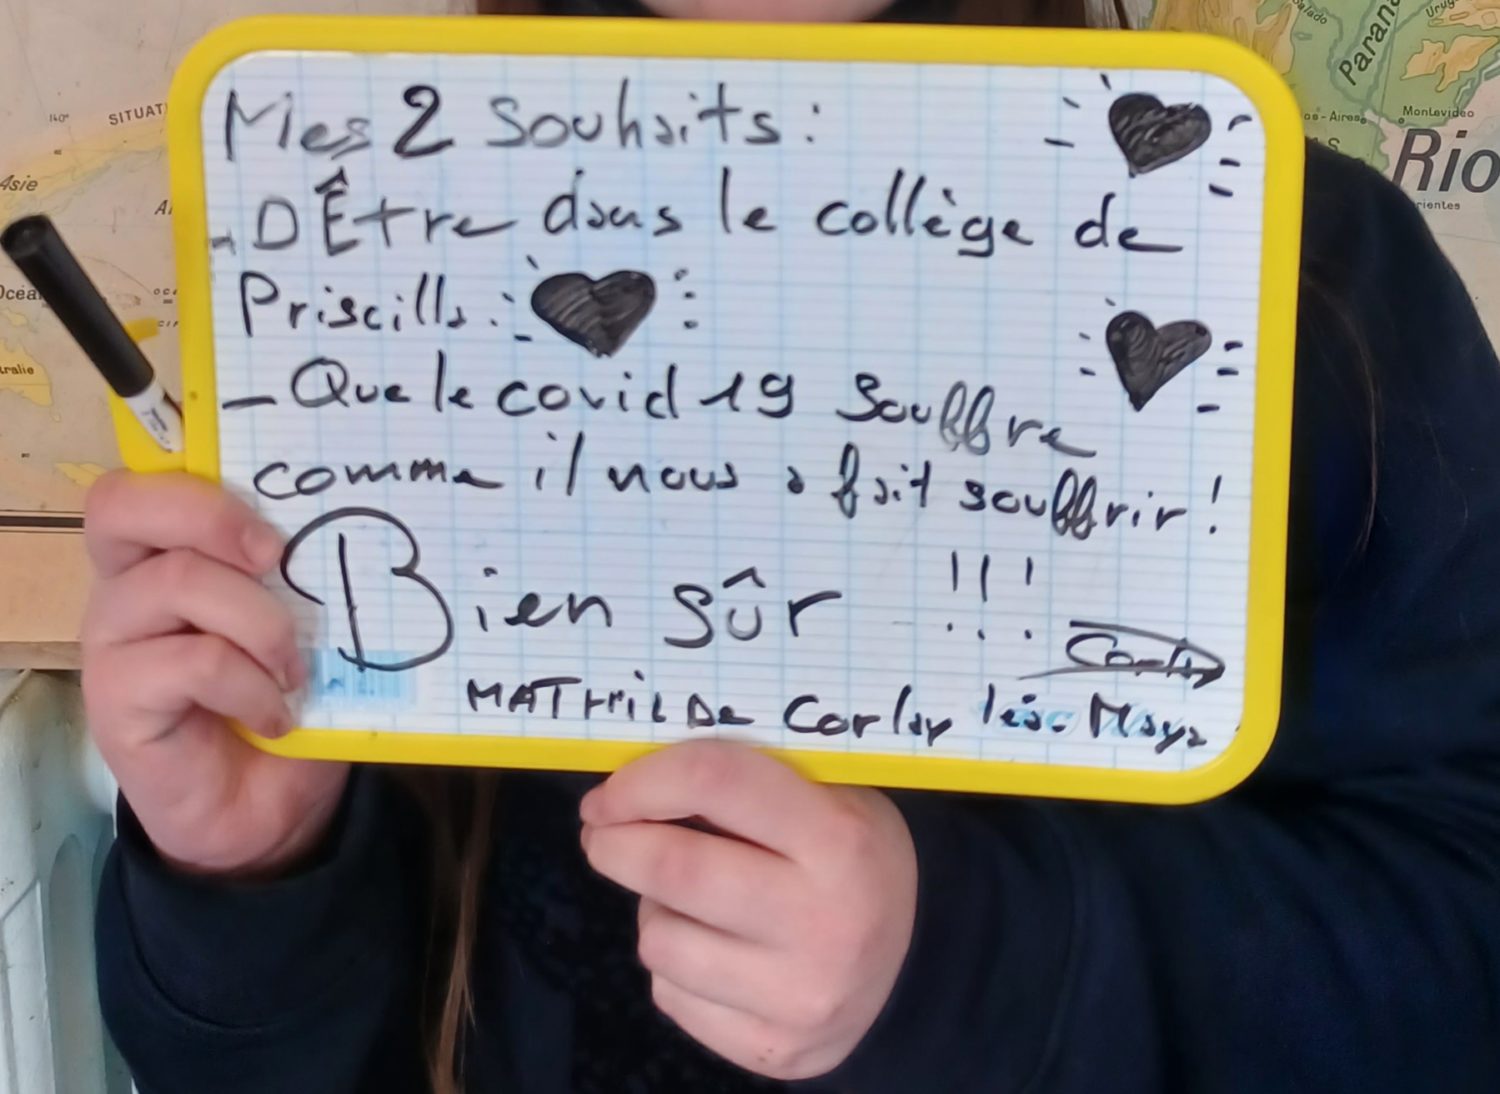 Mes 2 souhaits :
- D Être dans le collège de
Priscilla.
- Que le covid 19 souffre
comme il nous a fait souffrir !
Bien sûr !!!
MATHILDE Carlay Maya
140°
SITUAT
Asie
Océa
tralie
Paraná
Salado
Urug
Montevideo
os-Aires
Rio
rientes